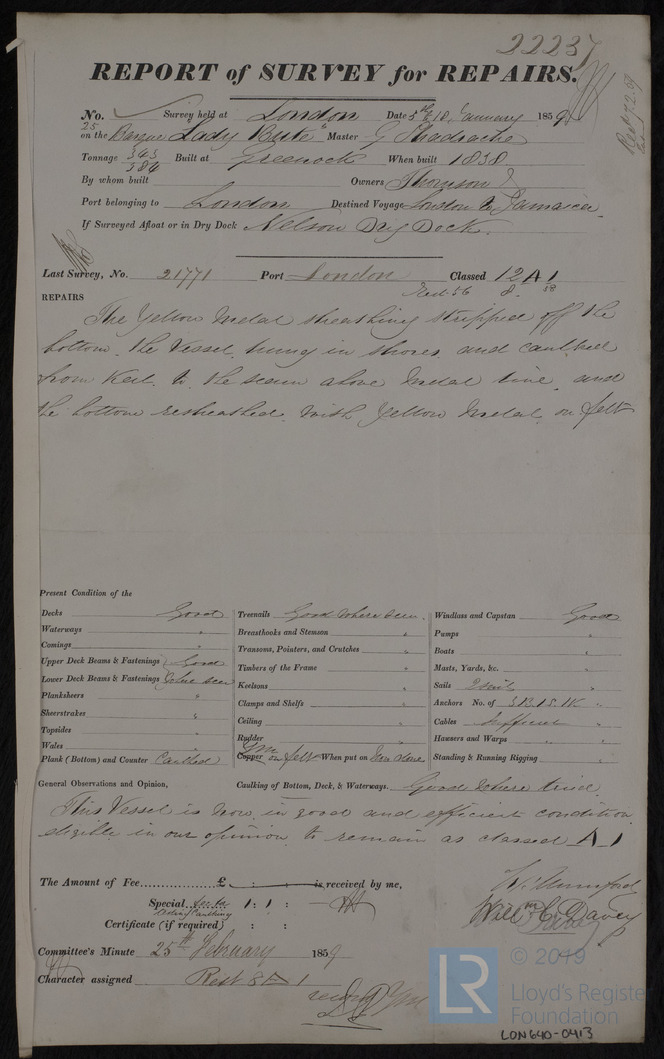 22237
REPORT of SURVEY for REPAIRS.
No. Survey held at London Date 5th & 10 January 1859
25 on the Barque Lady Bute Master
Tonnage 343 384 Built at Greenock When built 1838
By whom built Owners Thomson
Port belonging to London Destined Voyage London to Jamaica
If Surveyed Afloat or in Dry Dock Nelson Dry Dock.
Last Survey, No. 21771 Port London Classed 12 A 1
Rest 56 8. 58
REPAIRS
The Yellow Metal sheathing stripped off the
bottom. the Vessel hung in shores and caulked
from Keel to the seam above Metal line and
the bottom resheathed with Yellow Metal on felt
Present Condition of the
Decks Good
Waterways "
Comings "
Upper Deck Beams & Fastenings Good
Lower Deck Beams & Fastenings where seen
Planksheers "
Sheerstrakes "
Topsides "
Wales "
Plank (Bottom) and Counter Caulked
Treenails Good where seen.
Breasthooks and Stemson "
Transoms, Pointers, and Crutches "
Timbers of the Frame "
Keelsons "
Clamps and Shelfs "
Ceiling "
Rudder "
Copper YM on felt When put on New done
Windlass and Capstan Good
Pumps "
Boats "
Masts, Yards, &c. "
Sails "
Anchors No. of 3B. 1S. 1K "
Cables Sufficient "
Hawsers and Warps "
Standing & Running Rigging "
General Observations and Opinion, Caulking of Bottom, Deck, & Waterways. Good where tried
This Vessel is now in good and efficient condition
eligible in our opinion to remain as classed A 1
The Amount of Fee £ : : is received by me,
Special 1 : 1 :
Certificate (if required) : :
W. Mumford
Willm. C. Davey
Committee's Minute 25th February 1859
Character assigned Rest 8 A 1
© 2019
LR
Lloyd's Register
Foundation
LON640-0413